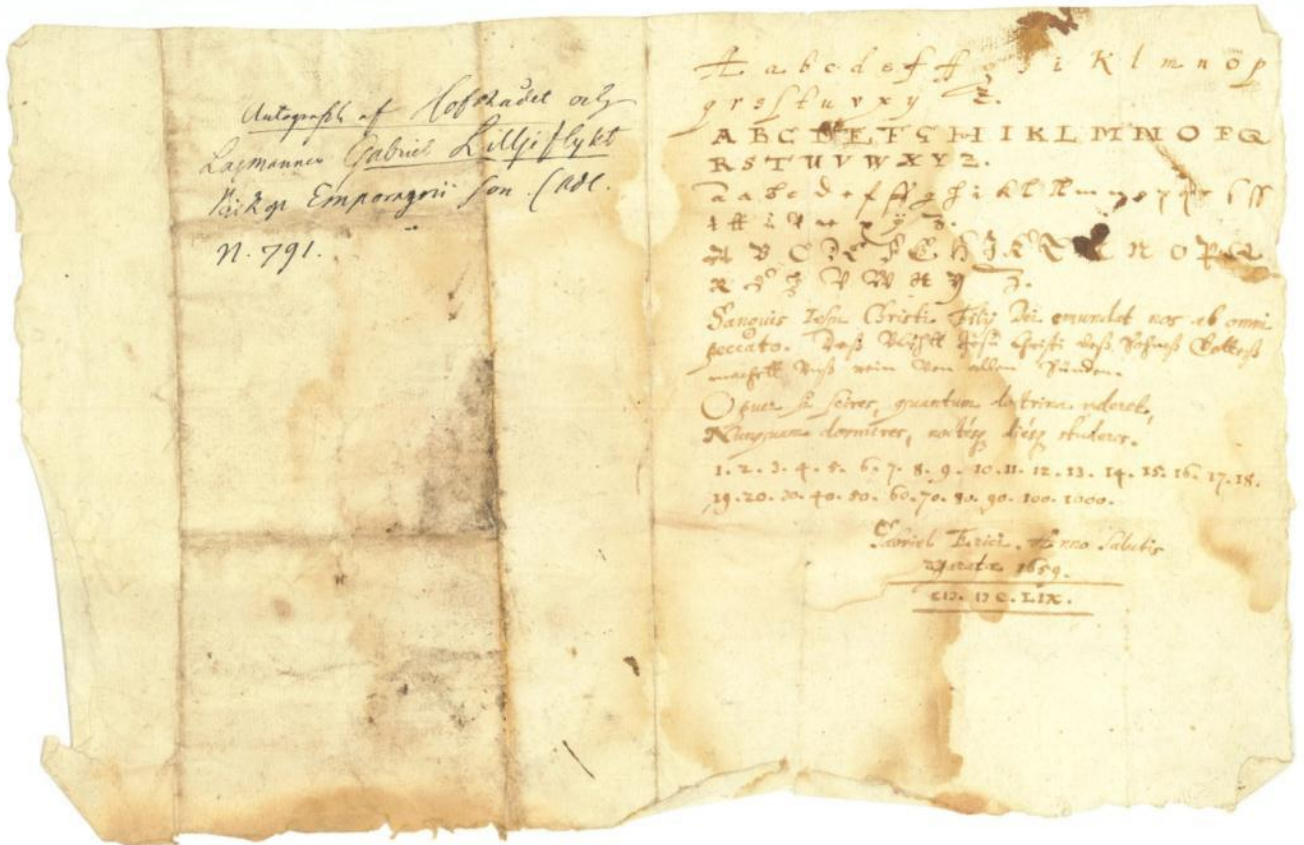 Autograph af Hofrådet och
Lagmannen Gabriel Lilljeflykt
Biskop Emporagrii son. (Adl.
N. 791.
A a b c d e f ff g h i K l m n o p
q r s ſ t u v x y z.
A B C D E F G H I K L M N O P Q
R S T U V W X Y Z.
a a b c d e f ff g h i k l ll m n o p q r s ſſ
t tt u v w x y z.
A B C D E F G H I K L N O P Q
R S T V W X Y Z.
Sanguis Iesu Christi Filij Dei emundat nos ab omni
peccato. Daß Jesu Christi deß Sohneß Gotteß
machett Vnß rein Von allen Sünden.
O puer si scires, quantum doctrina valeret,
Nunquam dormires, noctésq diésq studeres.
1. 2. 3. 4. 5. 6. 7. 8. 9. 10. 11. 12. 13. 14. 15. 16. 17. 18.
19. 20. 30. 40. 50. 60. 70. 80. 90. 100. 1000.
Gabriel Erici. Anno Salutis
1659.
CIƆ. IƆ C. LIX.